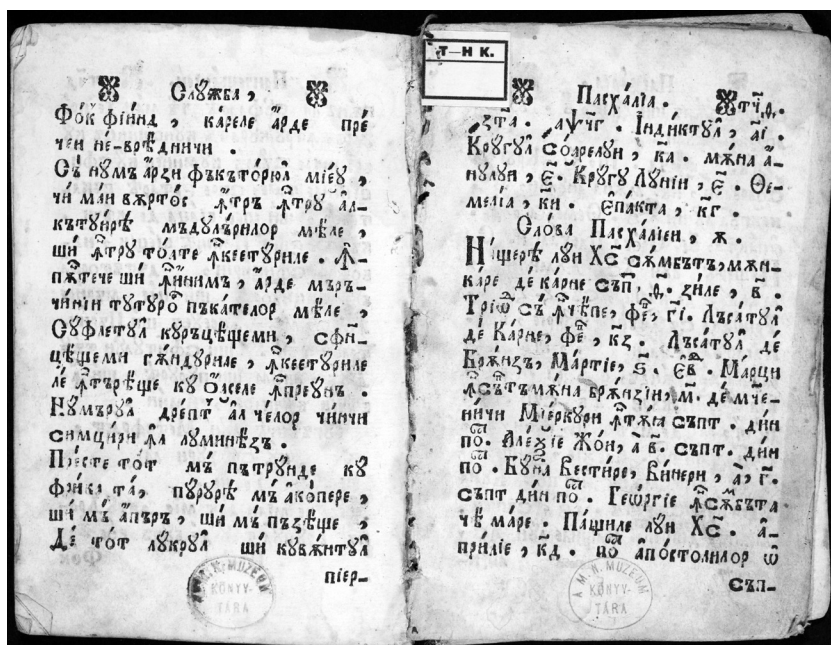 Слꙋжба ,
Фо́к фїи́нд , ка́реле а́рде пре́
чей не-вре́дничи .
Съ́ нꙋмъ а́рзи фъкъто́рюл мїе́ꙋ ,
чи ма́й вѫрто́с ꙟ҆тръ ꙟ҆трꙋ а҆л-
кътꙋи́рѣ мъдꙋлъ́рилор мѣ́ле ,
ши ꙟ҆трꙋ то́ате ꙟ҆кеетꙋриле . Ꙟ-
пѫ́тече ши ꙟ҆и́ним , а́рде мъръ-
чи́нїи тꙋтꙋро̆ пъка́телор мѣ́ле ,
Сꙋ́флетꙋл кꙋръцѣ́щеми , сфи-
цѣ́щеми гѫ́ндꙋриле , ꙟ҆кеетꙋриле
ле́ ꙟ҆търѣ́ще кꙋ о҆а́селе ꙟ҆преꙋнъ .
Нꙋ́мърꙋл дре́пт а҆л че́лор чи́нчи
симци́ри ꙟ҆л лꙋминѣ́зъ .
Пре́сте то́т мъ́ пътрꙋ́нде кꙋ
фри́ка та́ , пꙋ́рꙋрѣ мъ а҆ко́пере ,
ши мъ а́пъръ , ши мъ пъзѣ́ще ,
Де́ то́т лꙋ́крꙋл ши кꙋвѫ́нтꙋл
пїер-
Т—Н К.
Пасха́лїа . ҂тч҃д .
зта . аѱч҃г . І҆нди́ктꙋл , а҃і .
Крꙋ́гꙋл со́арелꙋи , к҃а . мѫ́на а́-
нꙋлꙋи , є҃ . Крꙋ́гꙋ Лꙋ́нїи , є҃ . Ѳе-
ме́лїа , к҃и . Є҆па́кта , к҃г .
Сло́ва Пасха́лїеи , ж .
На́щерѣ лꙋи Хс҃ сѫмбътъ , мѫн-
ка́ре де ка́рне съп҃ . д҃ . зиле , в҃ .
Трїѡ́ съ ꙟ҆че́пе , фе́ , г҃і . Лъса́тꙋл
де́ Ка́рне , фе́ , к҃з . Лъса́тꙋл де́
Брѫ́нзъ , Ма́ртїе , ѕ҃ . Є҆в . Ма́рци
ꙟ҆ съпътъмѫ́на Брѫ́нзїи , м҃ . де мч҃е-
ничи Мїе́ркꙋри ꙟ҆тѫ́а съпт . ди́н
по . Але́ѯїе Жо́и , а в҃ . съпт . ди́н
по . Бꙋ́на Вести́ре , Ви́нери , а́ , г҃ .
съпт ди́н по . Гео́ргїе ꙟ҆ сѫ́мбъта
чѣ ма́ре . Па́щиле лꙋи Хс҃ . а-
при́лїе , к҃д . по а҆по́столилор ѿ
съл-
A M. N. MUZEUM
KÖNYV-
TÁRA
A M. N. MUZEUM
KÖNYV-
TÁRA